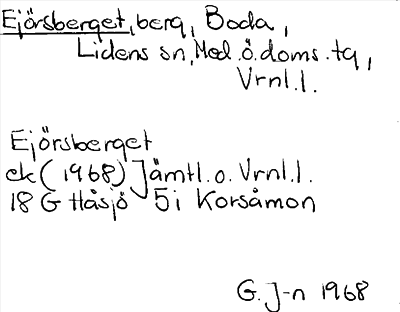 Ejörsberget, berg, Boda,
Lidens sn, Med.ö.doms.tg,
Vrnl.l.
Ejörsberget
ek (1968) Jämtl.o. Vrnl.l.
18 G Håsjö 5i Korsåmon
G. J-n 1968